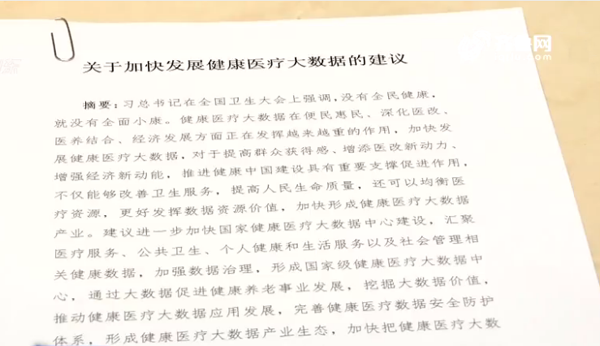 关于加快发展健康医疗大数据的建议
摘要：习总书记在全国卫生大会上强调，没有全民健康，
就没有全面小康。健康医疗大数据在便民惠民、深化医改、
医养结合、经济发展方面正在发挥越来越重的作用，加快发
展健康医疗大数据，对于提高群众获得感、增添医改新动力、
增强经济新动能，推进健康中国建设具有重要支撑促进作用，
不仅能够改善卫生服务，提高人民生命质量，还可以均衡医
疗资源，更好发挥数据资源价值，加快形成健康医疗大数据
产业。建议进一步加快国家健康医疗大数据中心建设，汇聚
医疗服务、公共卫生、个人健康和生活服务以及社会管理相
关健康数据，加强数据治理，形成国家级健康医疗大数据中
心，通过大数据促进健康养老事业发展，挖掘大数据价值，
推动健康医疗大数据应用发展，完善健康医疗数据安全防护
体系，形成健康医疗大数据产业生态，加快把健康医疗大数
网
.com